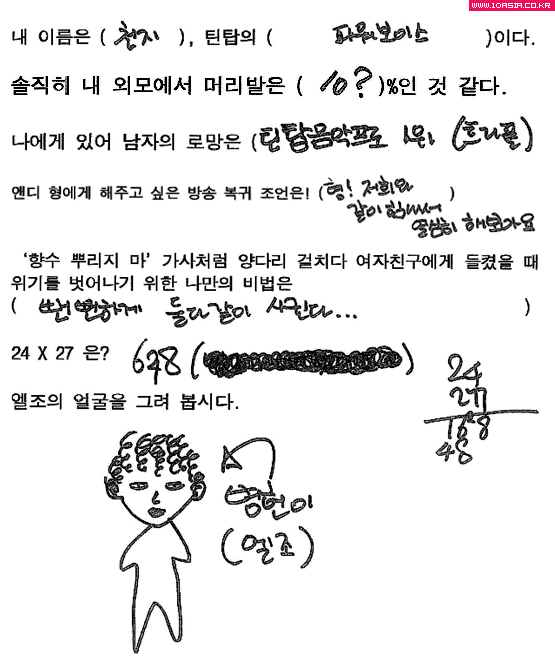 WWW.10ASIA.CO.KR
내 이름은 ( 천지 ), 틴탑의 ( 파워보이스 )이다.
솔직히 내 외모에서 머리발은 ( 10? )%인 것 같다.
나에게 있어 남자의 로망은 (틴탑음악프로 1위 (트리플)
앤디 형에게 해주고 싶은 방송 복귀 조언은! (형! 저희와 )
같이 힘내서
열심히 해보아요
‘향수 뿌리지 마’ 가사처럼 양다리 걸치다 여자친구에게 들켰을 때
위기를 벗어나기 위한 나만의 비법은
( 뻔뻔하게 둘다같이 사귄다... )
24 X 27 은? 648 ( )
24
27
168
48
엘조의 얼굴을 그려 봅시다.
병헌이
(엘조)